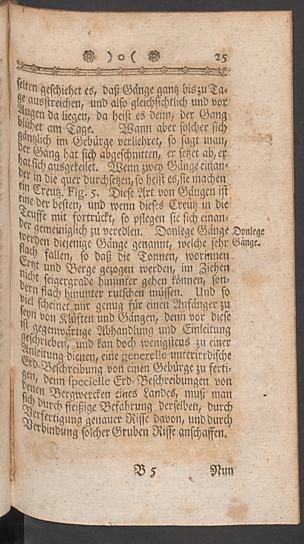 ❁ ) o ( ❁ 25
selten geschiehet es, daß Gänge gantz bis zu Ta-
ge ausstreichen, und also gleichsichtlich und vor
Augen da liegen, da heist es denn, der Gang
blühet am Tage. Wann aber solcher sich
gäntzlich im Gebürge verliehret, so sagt man,
der Gang hat sich abgeschnitten, er setzet ab, er
hat sich ausgekeilet. Wenn zwey Gänge einan-
der in die quer durchsetzen, so heist es, sie machen
ein Creutz, Fig. 5. Diese Art von Gängen ist
eine der besten, und wenn dieses Creutz in die
Teuffe mit fortrückt, so pflegen sie sich einan-
der gemeiniglich zu veredlen. Donlege Gänge
Donlege
werden diejenige Gänge genannt, welche sehr
Gänge.
flach fallen, so daß die Tonnen, worinnen
Ertz und Berge gezogen werden, im Ziehen
nicht seigergrade hinunter gehen können, son-
dern flach hinunter rutschen müssen. Und so
viel scheinet mir genug für einen Anfänger zu
seyn von Klüfften und Gängen, denn vor diese
ist gegenwärtige Abhandlung und Einleitung
geschrieben, und kan doch wenigstens zu einer
Anleitung dienen, eine generelle unterirrdische
Erd-Beschreibung von einen Gebürge zu ferti-
gen, denn specielle Erd-Beschreibungen von
denen Bergwercken eines Landes, muß man
sich durch fleißige Befahrung derselben, durch
Verfertigung genauer Risse davon, und durch
Verbindung solcher Gruben Risse anschaffen.
B 5 Nun